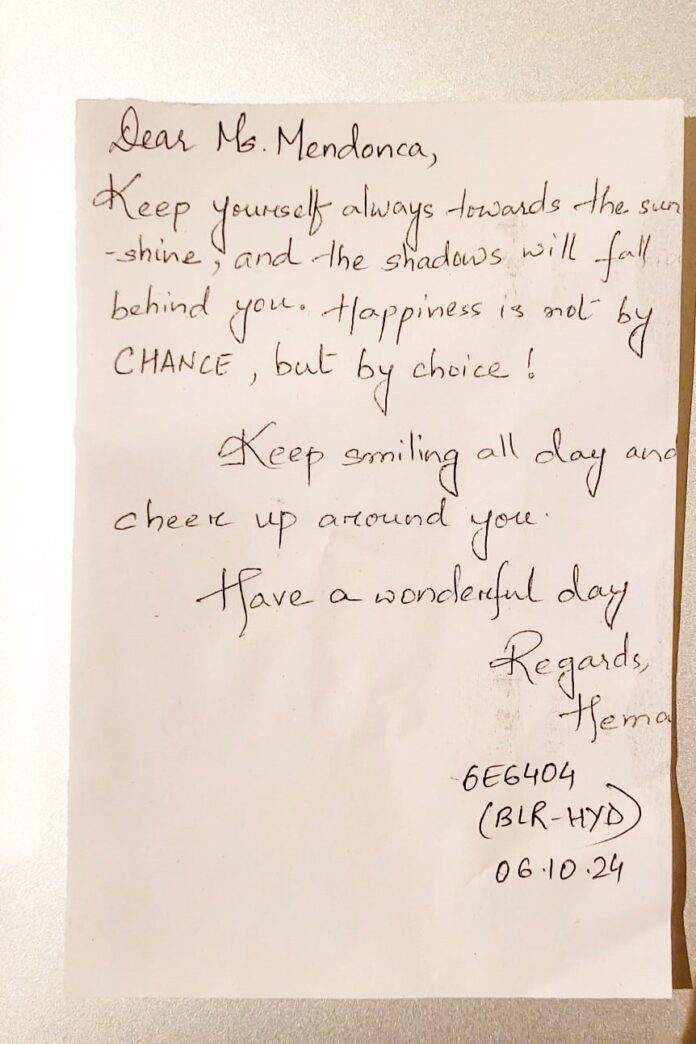 Dear Ms. Mendonca,
Keep yourself always towards the sun
-shine, and the shadows will fall
behind you. Happiness is not by
CHANCE, but by choice!
Keep smiling all day and
cheer up around you.
Have a wonderful day
Regards,
Hema
6E6404
(BLR-HYD)
06.10.24